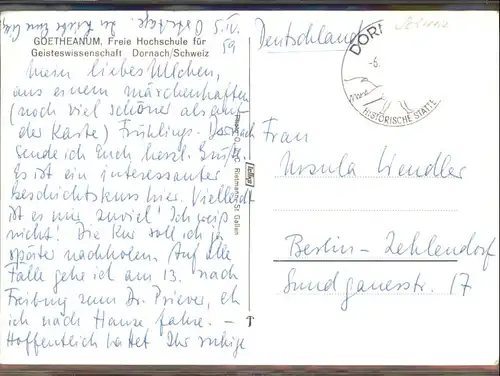 5.IV. 59
Ostertage. In Liebe
GOETHEANUM, Freie Hochschule für
Geisteswissenschaft Dornach/Schweiz
Mein liebes Ulchen,
aus einem märchenhaften
(noch viel schöner als auf
der Karte) Frühlings-Dornach
sende ich Euch herzl. Grüße.
Es ist ein interessanter
Geschichtskurs hier. Vielleicht
ist es mir zuviel! Ich weiß
nicht! Die Kur soll ich ja
später nachholen. Auf alle
Fälle gehe ich am 13. nach
Freiburg zum Dr. Priever, eh
ich nach Hause fahre. –
Hoffentlich hattet Ihr ruhige
Rietmann, St. Gallen
Deutschland
DOR
-6.
HISTORISCHE STÄTTE
Frau
Ursula Wendler
Berlin-Zehlendorf
Sundgauerstr. 17